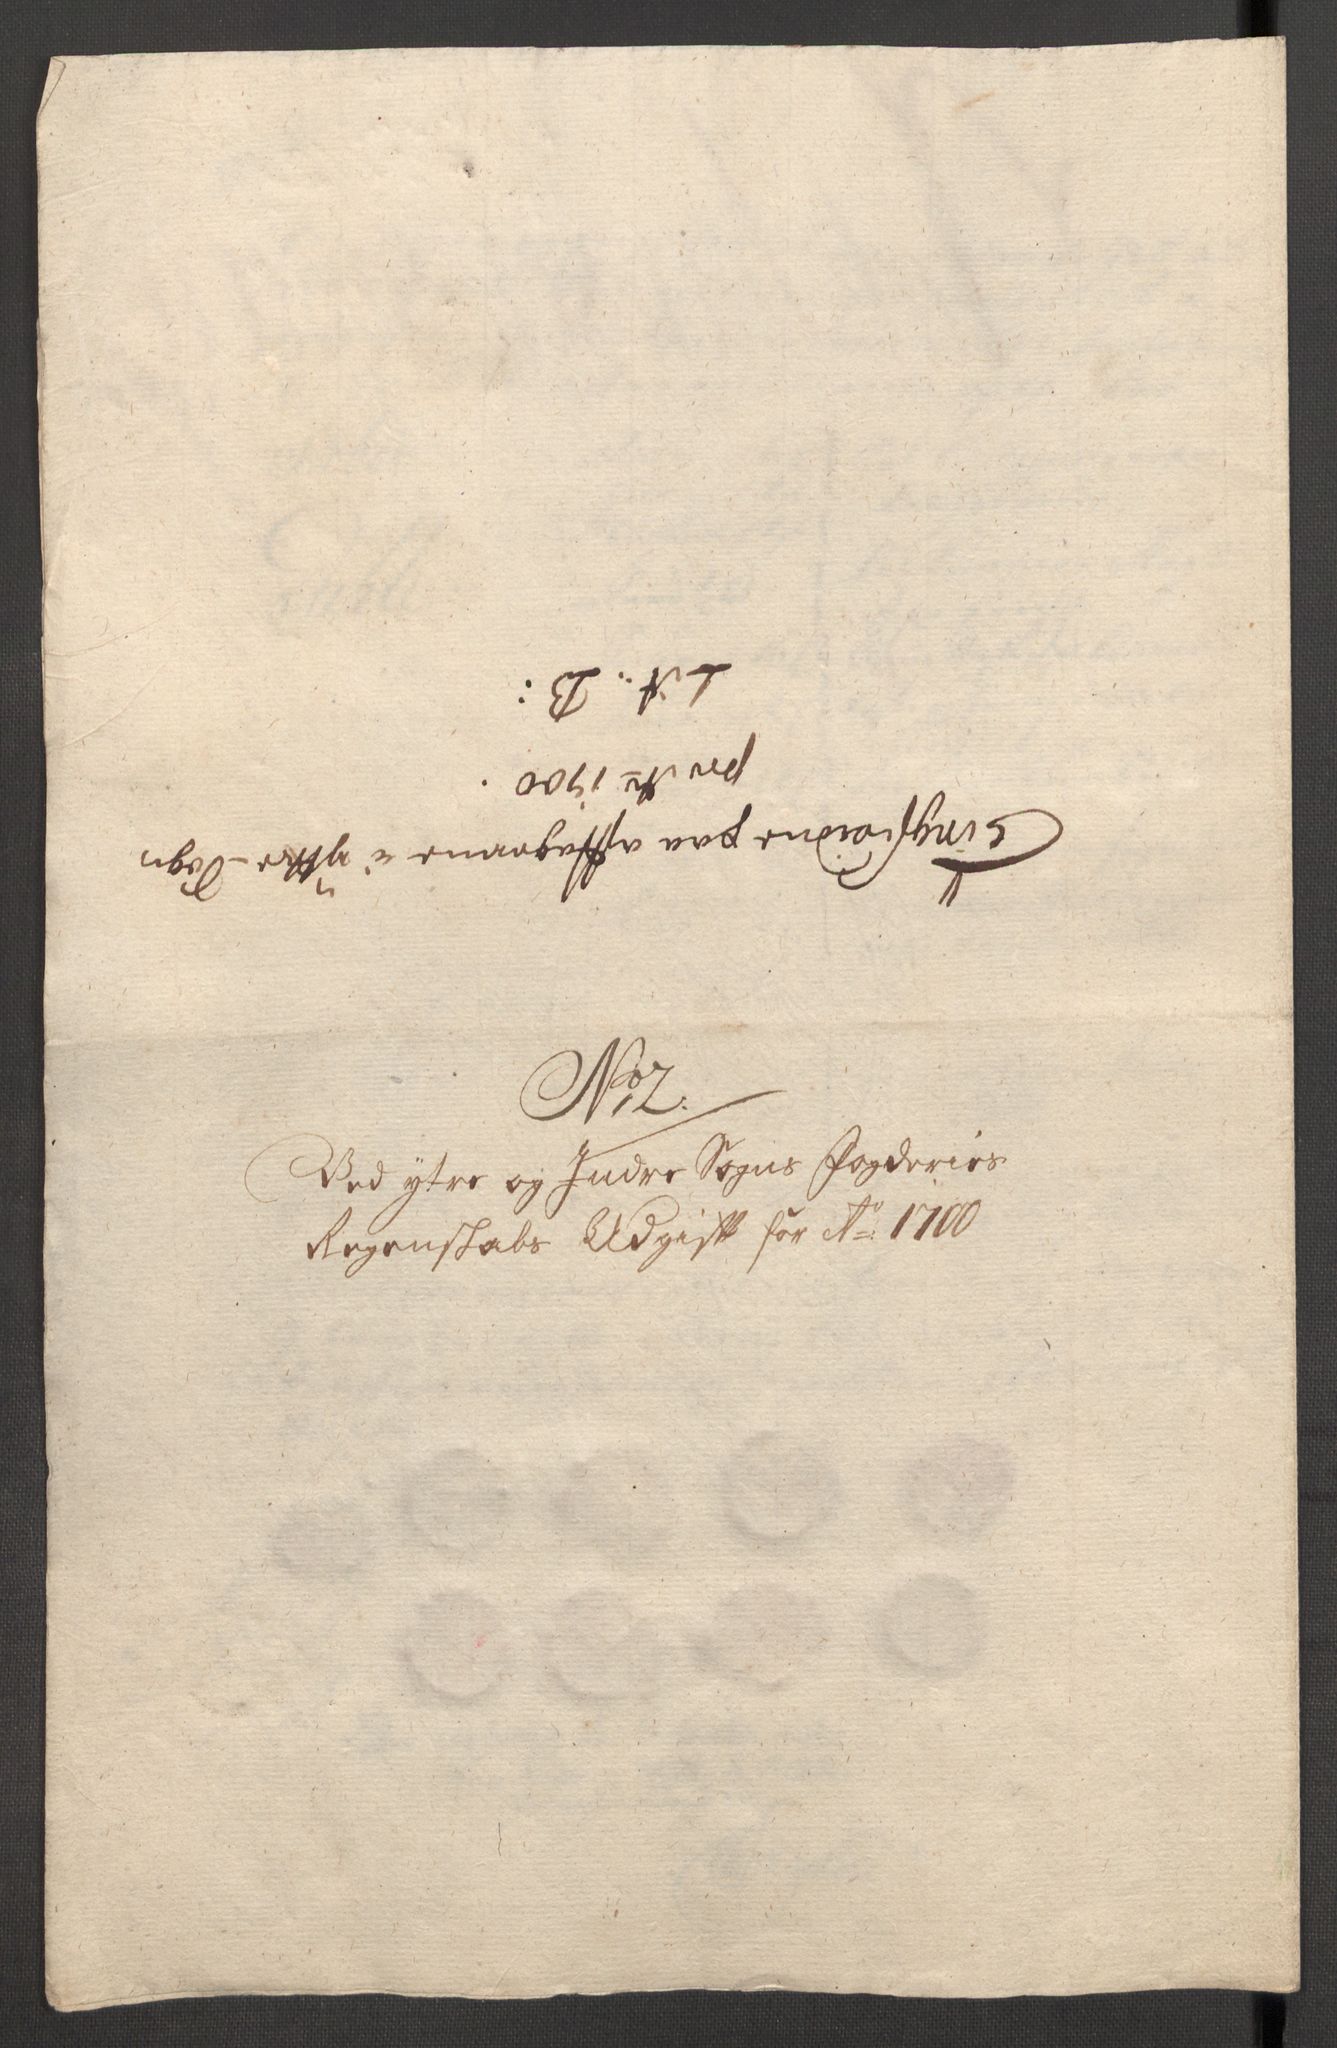 Tingsvidne paa afftagerne i ÿttre Sogn
pro Ao 1700.
Lit. B:
No 2.
Ved ytre og Indre Sogns fogderies
Regenskabs Udgifft for Ao: 1700